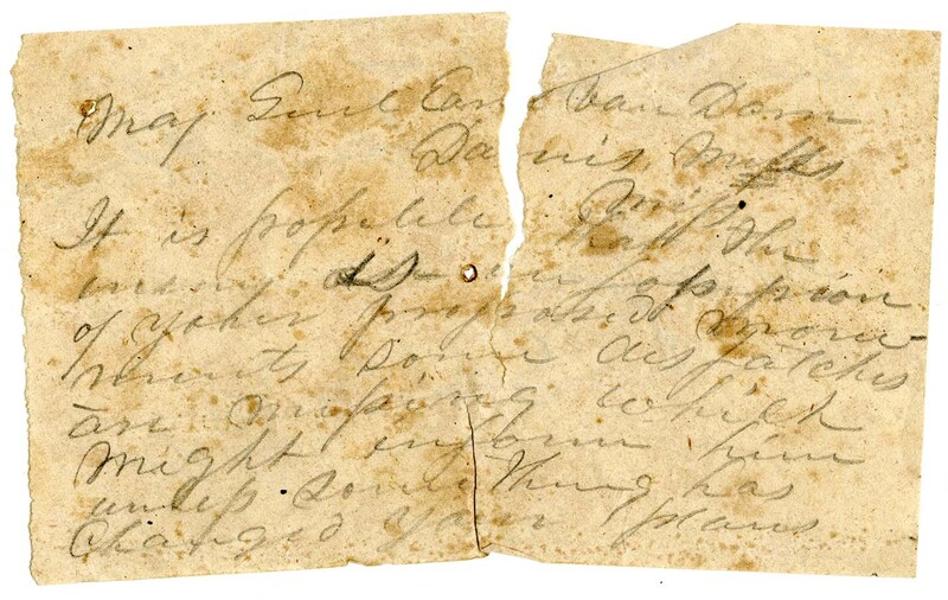 Maj Genl Earl Van Dorn
Davis Mills
Miss
It is possible that the
enemy is in possession
of your proposed move-
ments some dispatches
are missing which
might inform him
unless something has
changed your plans